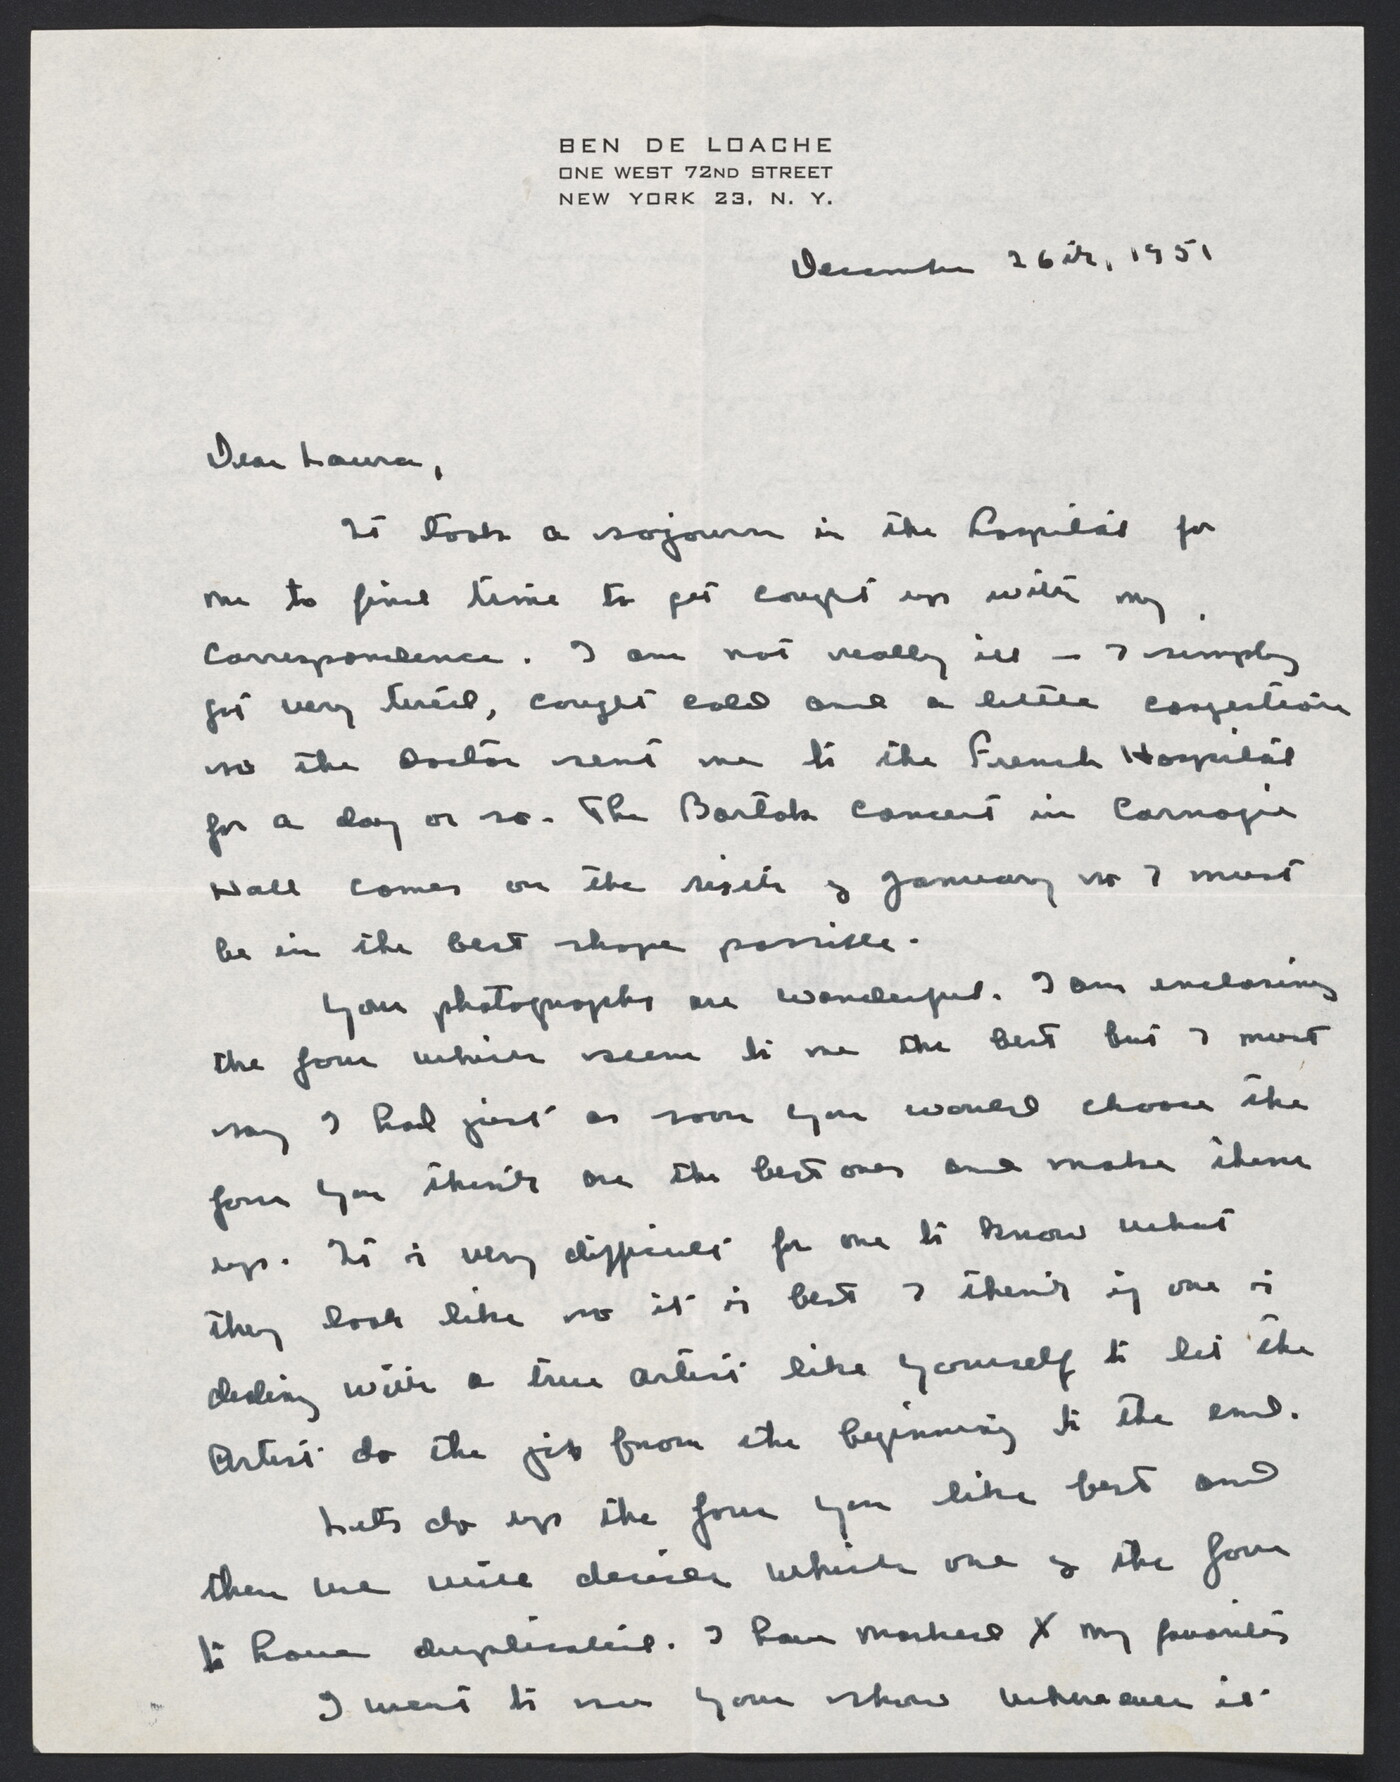 BEN DE LOACHE
ONE WEST 72ND STREET
NEW YORK 23, N. Y.
December 26th, 1951
Dear Laura,
It took a sojourn in the hospital for
me to find time to get caught up with my
correspondence. I am not really ill – I simply
got very tired, caught cold and a little congestion
so the doctor sent me to the French Hospital
for a day or so. The Bartok concert in Carnegie
Hall comes on the sixth of January so I must
be in the best shape possible.
Your photographs are wonderful. I am enclosing
the four which seem to me the best but I must
say I had just as soon you would choose the
four you think are the best ones and make them
up. It is very difficult for one to know what
they look like so it is best I think if one is
dealing with a true artist like yourself to let the
Artist do the job from the beginning to the end.
Lets do up the four you like best and
then we will decide which one of the four
to have duplicated. I have marked X my favorites
I want to see your show whereever it